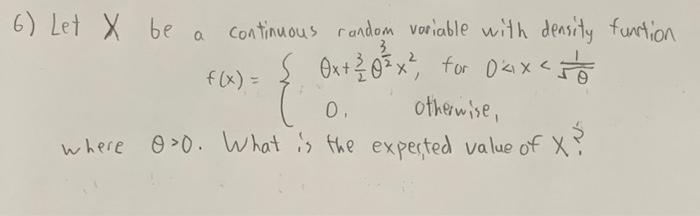 6) Let X be a continuous random variable with density function
f(x) = { θx + 3/2 θ^(3/2) x², for 0 < x < 1/√θ
0, otherwise,
where θ>0. What is the expected value of X?